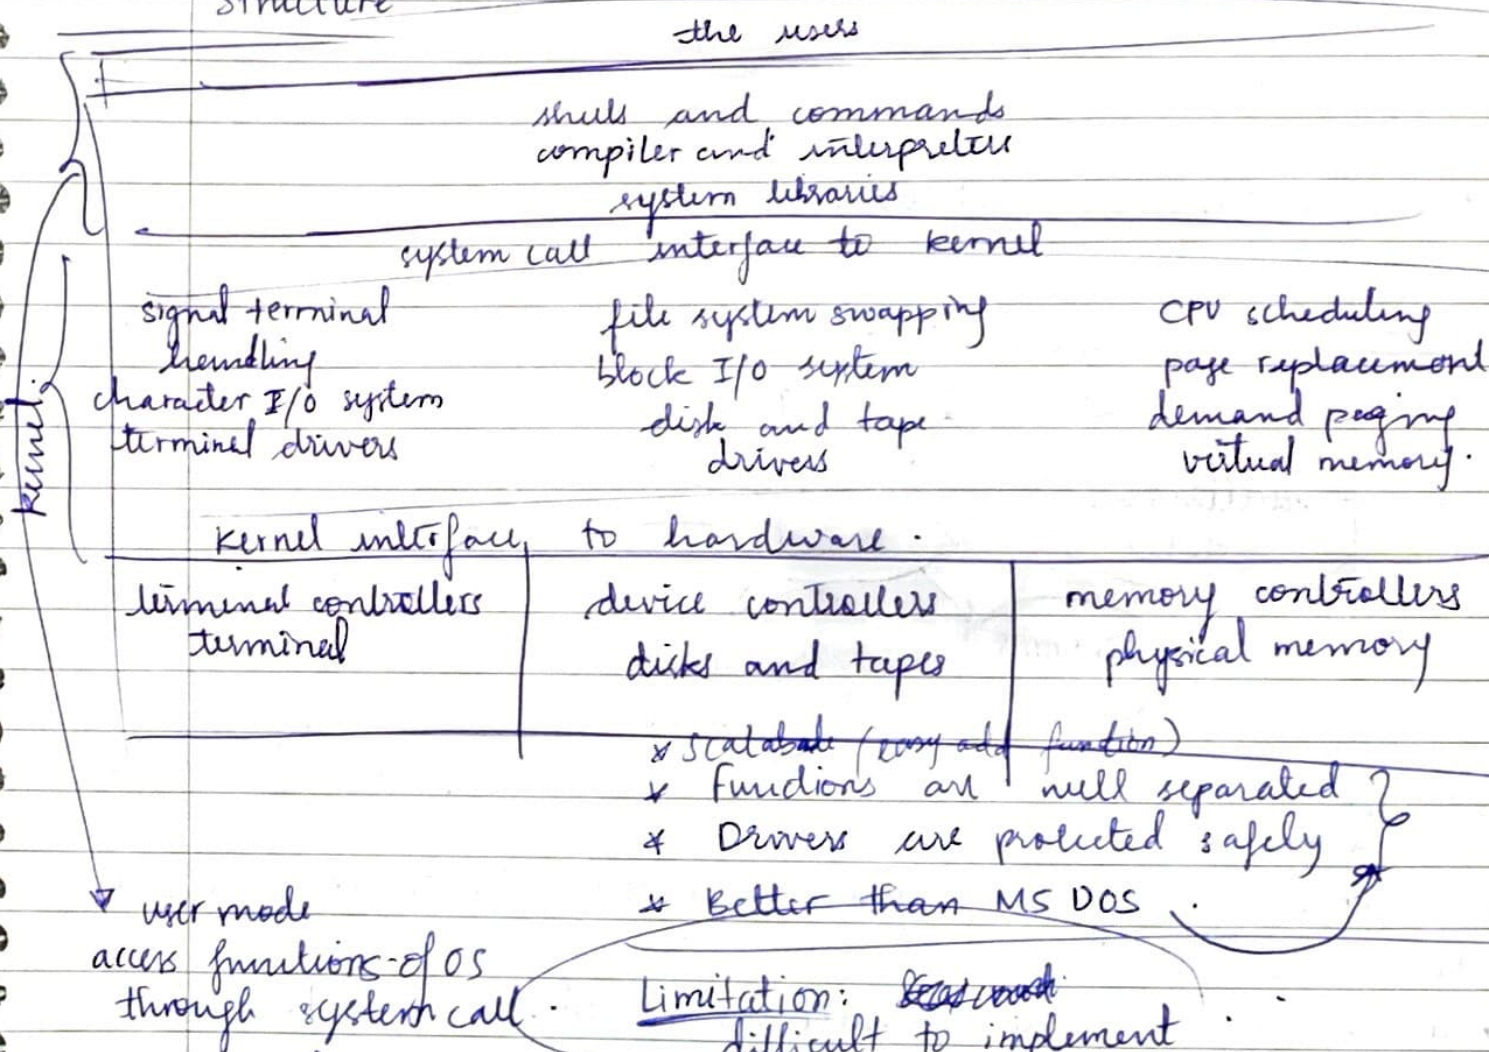 structure
the users
shells and commands
compiler and interpreter
system libraries
system call interface to kernel
signal terminal
handling
character I/O system
terminal drivers
file system swapping
block I/O system
disk and tape
drivers
CPU scheduling
page replacement
demand paging
virtual memory.
kernel.
kernel interface to hardware.
terminal controllers
terminal
device controllers
disks and tapes
memory controllers
physical memory
* scalabale (easy add function)
* Functions are well separated
* Drivers are protected safely
* Better than MS DOS
user mode
access functions of OS
through system call.
Limitation:
difficult to implement